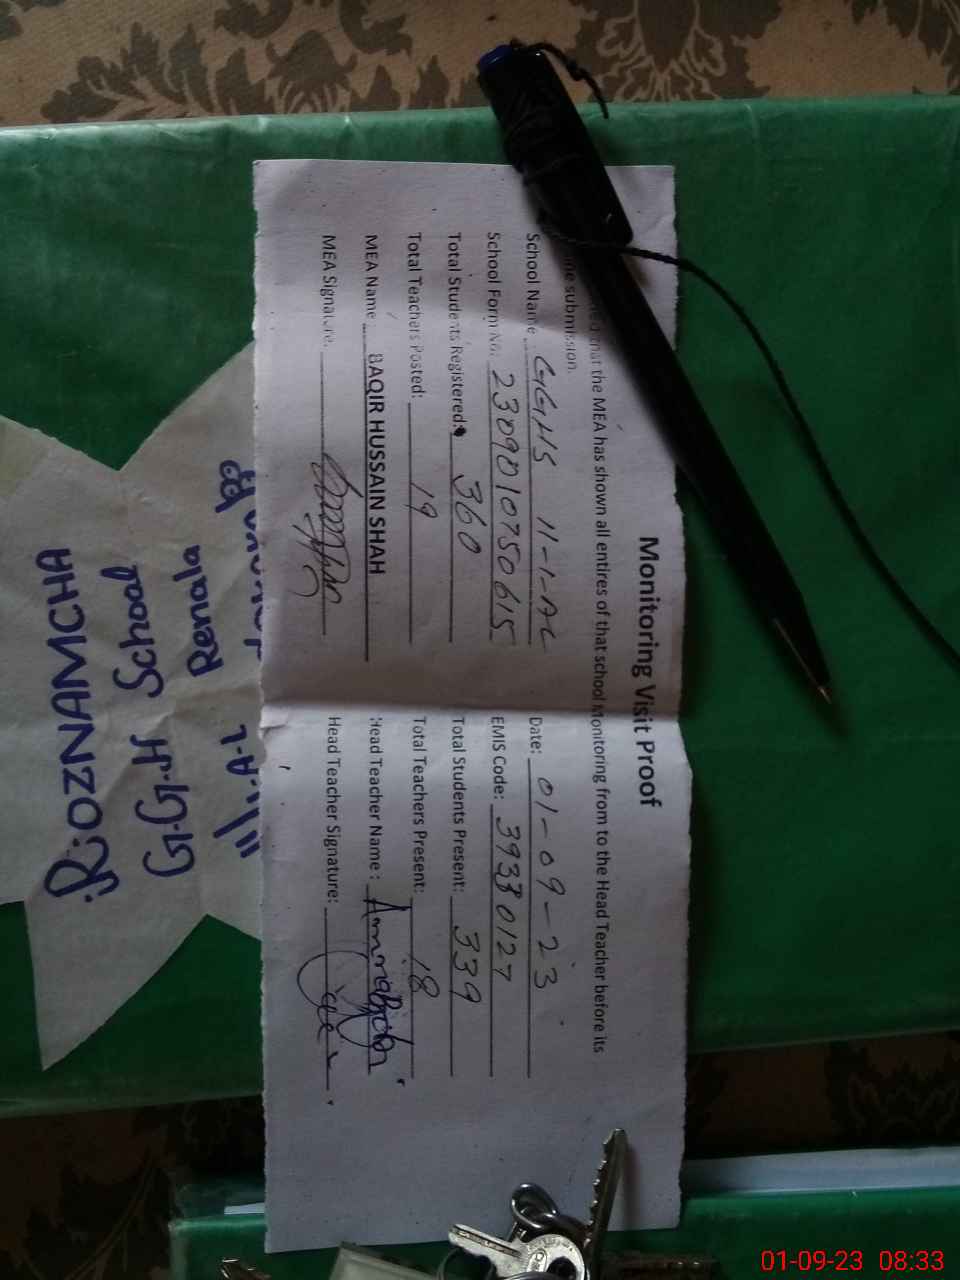 Monitoring Visit Proof
that the MEA has shown all entires of that school Monitoring from to the Head Teacher before its
submission.
School Name: GGHS 11-1-AL Date: 01-09-23
School Form No: 2309010750615 EMIS Code: 39330127
Total Students Registered: 360 Total Students Present: 339
Total Teachers Posted: 19 Total Teachers Present: 18
MEA Name BAQIR HUSSAIN SHAH Head Teacher Name :
MEA Signature: Head Teacher Signature:
ROZNAMCHA
G.G.H School
Renala
11/1.A-L
01-09-23 08:33